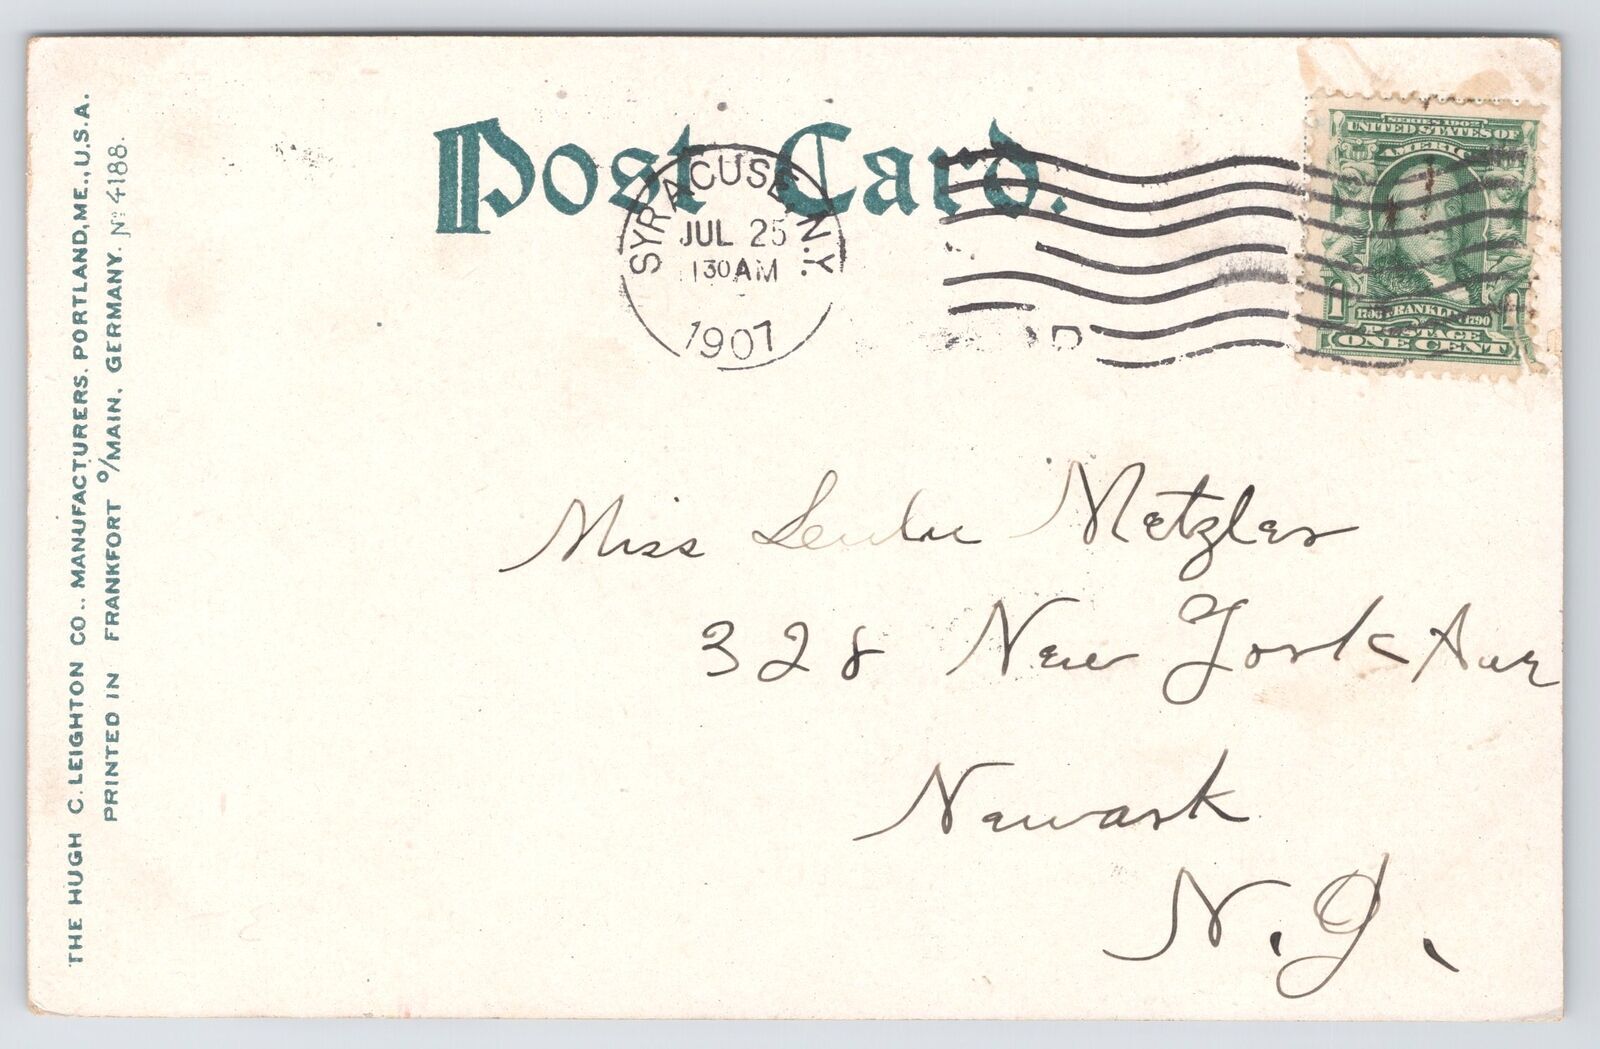 Post Card.
SYRACUSE, N.Y.
JUL 25
1 30 AM
1907
SERIES 1902
UNITED STATES OF
AMERICA
1 1
1706 FRANKLIN 1790
POSTAGE
ONE CENT
Miss Metzler
328 New York Ave
Newark
N. J.
THE HUGH C. LEIGHTON CO., MANUFACTURERS. PORTLAND, ME., U.S.A.
PRINTED IN FRANKFORT O/MAIN. GERMANY. No 4188.